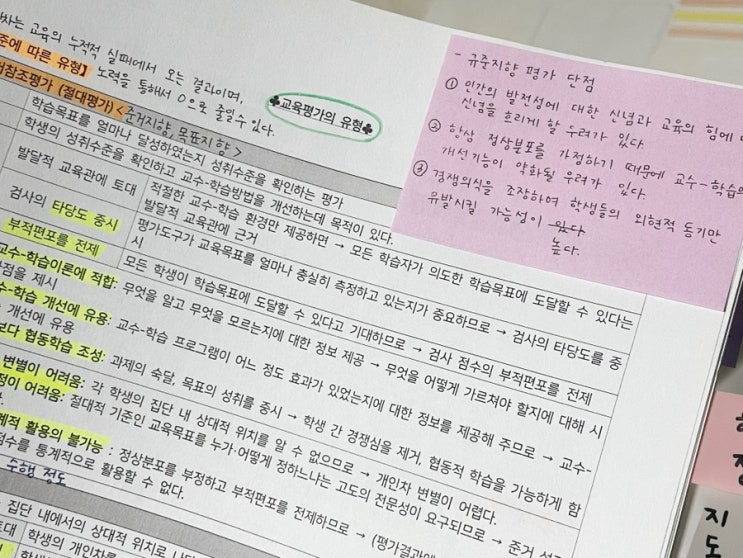 차는 교육의 누적적 실패에서 오는 결과이며,
노력을 통해서 0으로 줄일 수 있다.
준에 따른 유형】
♣교육평가의 유형♣
거참조평가 (절대평가) <준거지향, 목표지향>
학습목표를 얼마나 달성하였는지 성취수준을 확인하는 평가
학생의 성취수준을 확인하고 교수-학습방법을 개선하는데 목적이 있다.
발달적 교육관에 토대
적절한 교수-학습 환경만 제공하면 → 모든 학습자가 의도한 학습목표에 도달할 수 있다는
발달적 교육관에 근거
검사의 타당도 중시
평가도구가 교육목표를 얼마나 충실히 측정하고 있는지가 중요하므로 → 검사의 타당도를 중
시
부적편포를 전제
모든 학생이 학습목표에 도달할 수 있다고 기대하므로 → 검사 점수의 부적편포를 전제
교수-학습이론에 적합: 무엇을 알고 무엇을 모르는지에 대한 정보 제공 → 무엇을 어떻게 가르쳐야 할지에 대해 시
점을 제시
수-학습 개선에 유용: 교수-학습 프로그램이 어느 정도 효과가 있었는지에 대한 정보를 제공해 주므로 → 교수-
개선에 유용
보다 협동학습 조성: 과제의 숙달, 목표의 성취를 중시 → 학생 간 경쟁심을 제거, 협동적 학습을 가능하게 함
변별이 어려움: 각 학생의 집단 내 상대적 위치를 알 수 없으므로 → 개인차 변별이 어렵다.
정이 어려움: 절대적 기준인 교육목표를 누가·어떻게 정하느냐는 고도의 전문성이 요구되므로 → 준거
계적 활용의 불가능 : 정상분포를 부정하고 부적편포를 전제하므로 → (평가결과에
점수를 통계적으로 활용할 수 없다.
수행 정도
집단 내에서의 상대적 위치로
토대 학생의 개인차를
- 규준지향 평가 단점
① 인간의 발전성에 대한 신념과 교육의 힘에
신념을 흐리게 할 우려가 있다
② 항상 정상분포를 가정하기 때문에 교수-학습의
개선기능이 약화될 우려가 있다.
③ 경쟁의식을 조장하여 학생들의 외현적 동기만
유발시킬 가능성이 있다
높다.
지
도